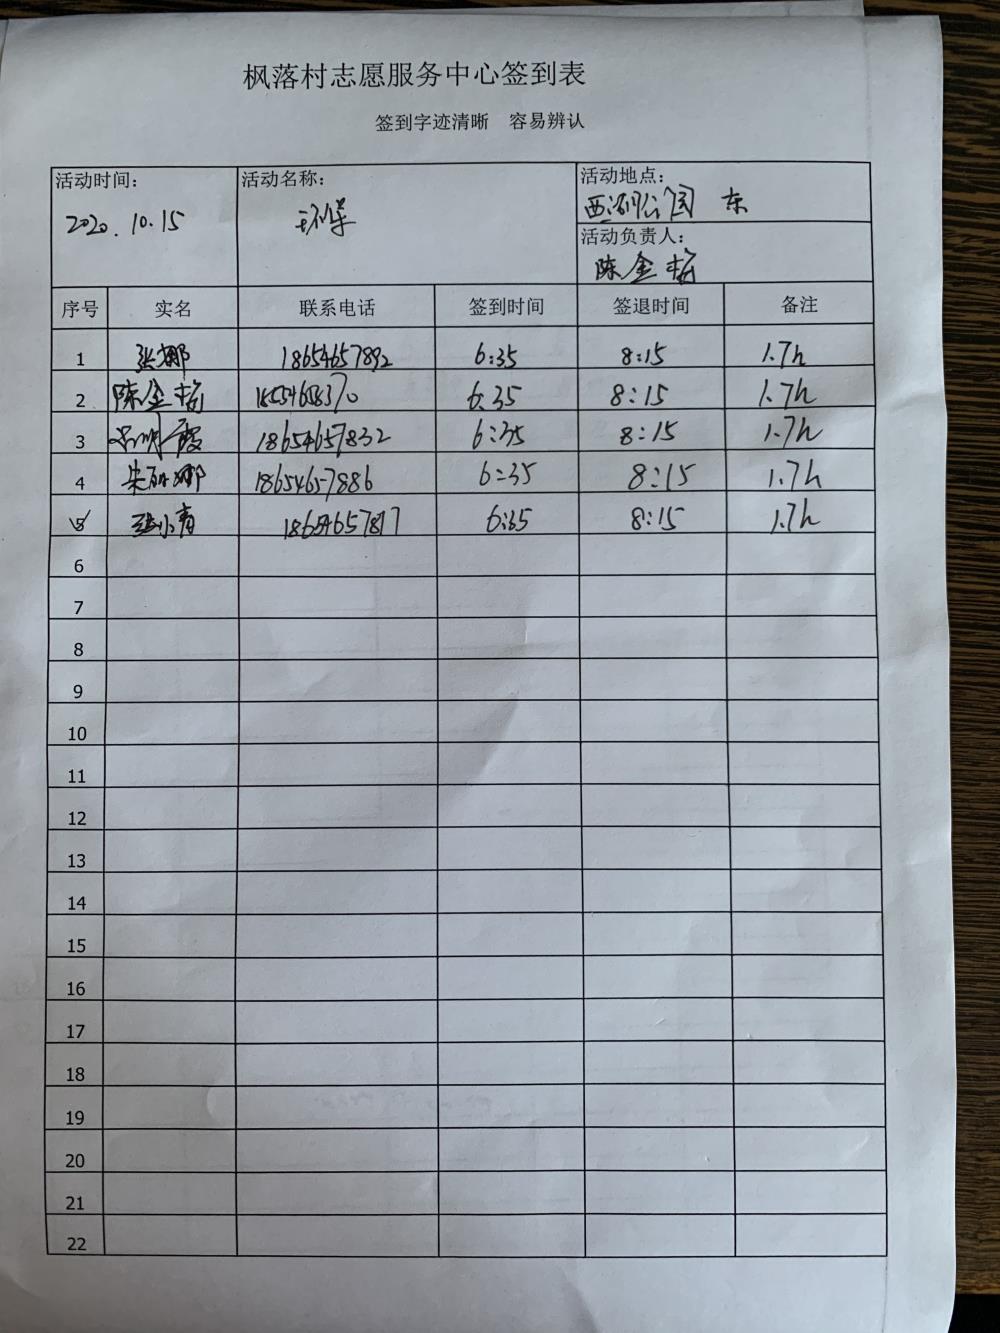 枫落村志愿服务中心签到表
签到字迹清晰 容易辨认
活动时间： 活动名称： 活动地点：
2020.10.15 西湖公园 东
活动负责人：
陈金梅
序号 实名 联系电话 签到时间 签退时间 备注
1 张娜 18654657892 6:35 8:15 1.7h
2 陈金梅 6:35 8:15 1.7h
3 18654657832 6:35 8:15 1.7h
4 朱丽娜 18654657886 6:35 8:15 1.7h
5 张小青 18654657817 6:35 8:15 1.7h
6
7
8
9
10
11
12
13
14
15
16
17
18
19
20
21
22